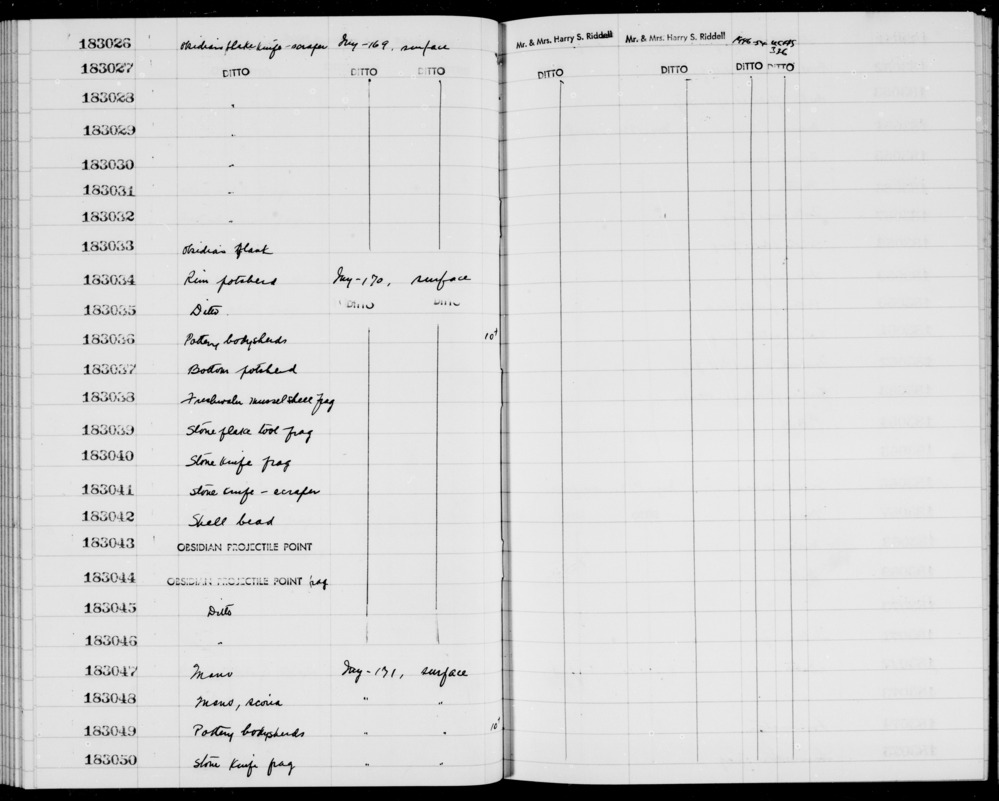 183026 Obsidian flake knife-scraper Iny-169, surface Mr. & Mrs. Harry S. Riddell Mr. & Mrs. Harry S. Riddell UCAS 336
183027 DITTO DITTO DITTO DITTO DITTO DITTO DITTO
183028 "
183029 "
183030 "
183031 "
183032 "
183033 Obsidian blank
183034 Rim potsherd Iny-170, surface
183035 Ditto DITTO DITTO
183036 Pottery bodysherds 10+
183037 Bottom potsherd
183038 Freshwater mussel shell frag
183039 Stone flake tool frag
183040 Stone knife frag
183041 Stone knife - scraper
183042 Shell bead
183043 OBSIDIAN PROJECTILE POINT
183044 OBSIDIAN PROJECTILE POINT frag
183045 Ditto
183046 "
183047 Mano Iny-171, surface
183048 Mano, scoria " "
183049 Pottery bodysherds " " 10+
183050 Stone knife frag " "